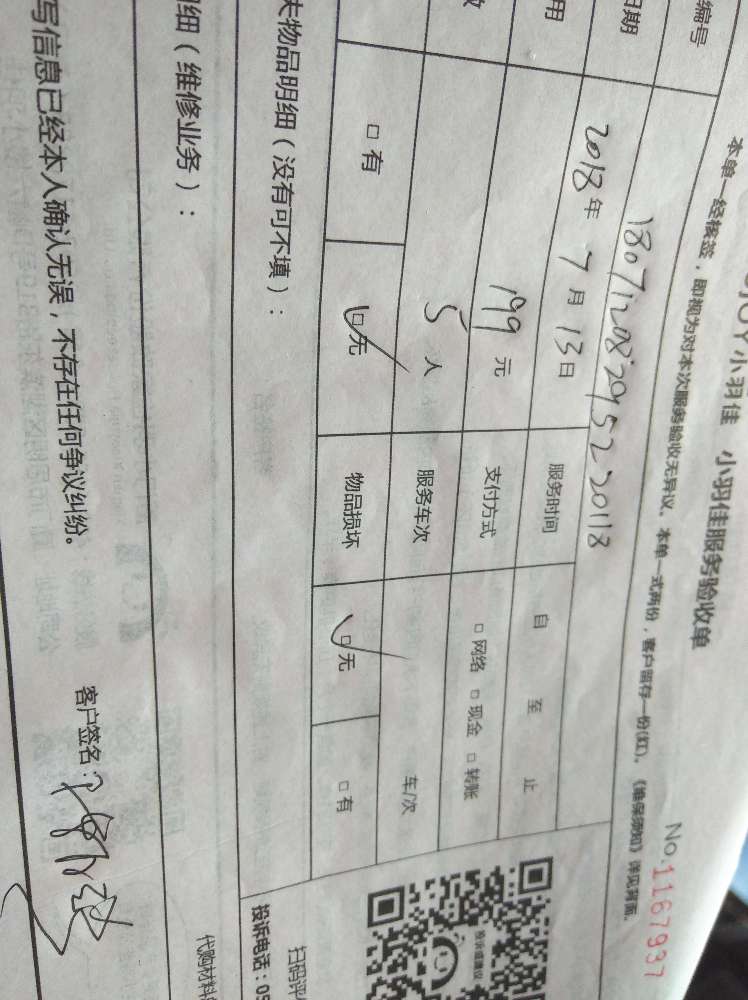 JOY小羽佳 小羽佳服务验收单
No.1167937
本单一经核签，即视为对本次服务验收无异议。本单一式两份，客户留存一份(红)。《维保须知》详见背面。
编号 18071208295220118
日期 2018年7月13日 服务时间 自 至 止
用 199元 支付方式 □网络 □现金 □转账
数 5人 服务车次 车/次
□有 □无 物品损坏 □无 □有
失物品明细（没有可不填）：
细（维修业务）：
写信息已经本人确认无误，不存在任何争议纠纷。
客户签名：
投诉或建议
扫码评
投诉电话：05
代购材料